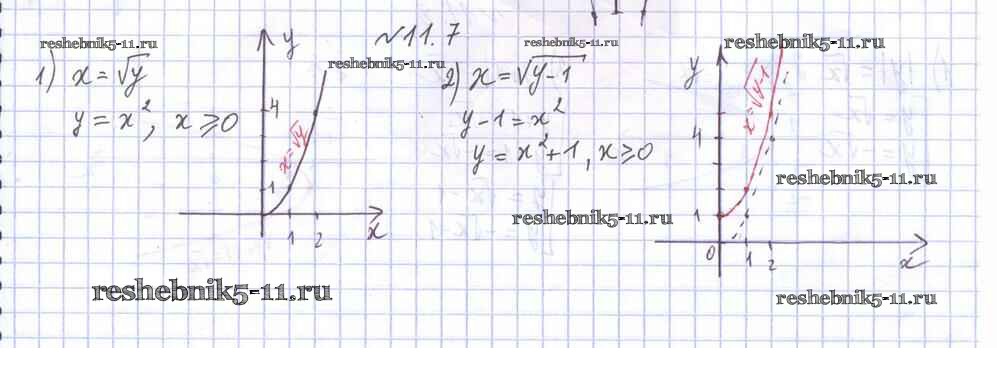 №11.7
reshebnik5-11.ru
1) x = √y
y = x², x ⩾ 0
y
4
1
x = √y
1 2 x
reshebnik5-11.ru
reshebnik5-11.ru
reshebnik5-11.ru
2) x = √(y-1)
y-1 = x²
y = x²+1, x ⩾ 0
reshebnik5-11.ru
reshebnik5-11.ru
y
x = √(y-1)
4
reshebnik5-11.ru
1
0 1 2 x
reshebnik5-11.ru